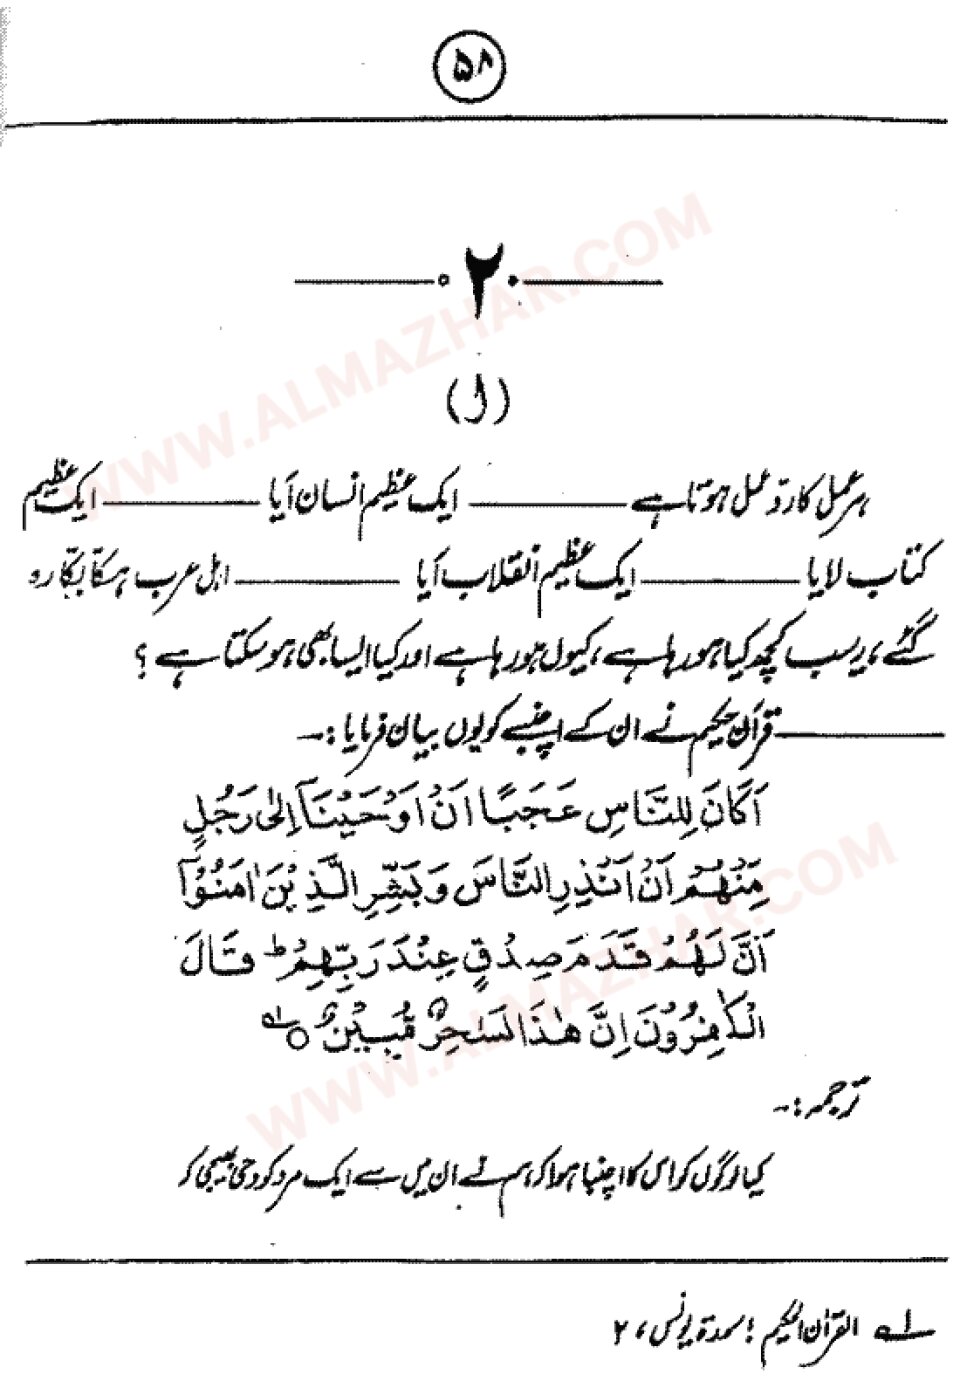 ۵۸
۲
(ل)
ہر عمل کا ردِ عمل ہوتا ہے ـــــــ ایک عظیم انسان آیا ـــــــ ایک عظیم
کتاب لایا ـــــــ ایک عظیم انقلاب آیا ـــــــ اہل عرب ہکّا بکّا رہ
گئے، یہ سب کچھ کیا ہو رہا ہے، کیوں ہو رہا ہے اور کیا ایسا بھی ہو سکتا ہے ؟
ـــــــ قرآن حکیم نے ان کے اچنبھے کو یوں بیان فرمایا :۔
اَكَانَ لِلنَّاسِ عَجَبًا اَنْ اَوْحَيْنَآ اِلٰى رَجُلٍ
مِّنْهُمْ اَنْ اَنْذِرِ النَّاسَ وَبَشِّرِ الَّذِيْنَ اٰمَنُوْٓا
اَنَّ لَهُمْ قَدَمَ صِدْقٍ عِنْدَ رَبِّهِمْ ؕ قَالَ
الْكٰفِرُوْنَ اِنَّ هٰذَا لَسٰحِرٌ مُّبِيْنٌ ○ ؎۱
ترجمہ :۔
کیا لوگوں کو اس کا اچنبا ہوا کہ ہم نے ان میں سے ایک مرد کو وحی بھیجی کہ
؎۱ القرآن الحکیم : سورۃ یونس، ۲
WWW.ALMAZHAR.COM
WWW.ALMAZHAR.COM